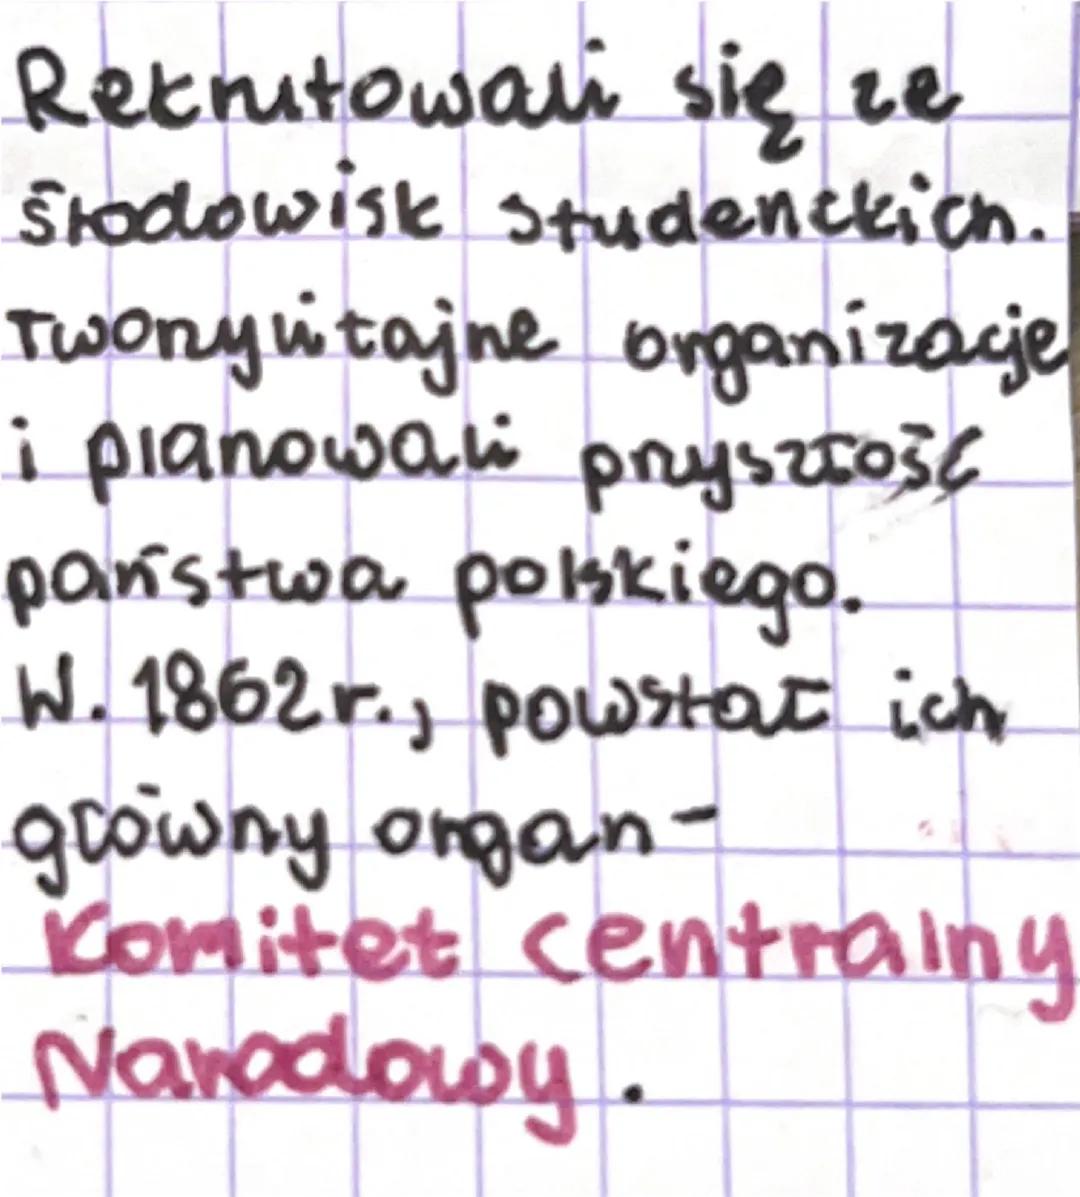 Rekrutowali się ze
środowisk studenckich.
Tworzyli tajne organizacje
i planowali przyszłość
państwa polskiego.
W. 1862r., powstał ich
główny organ-
Komitet centralny
Narodowy.